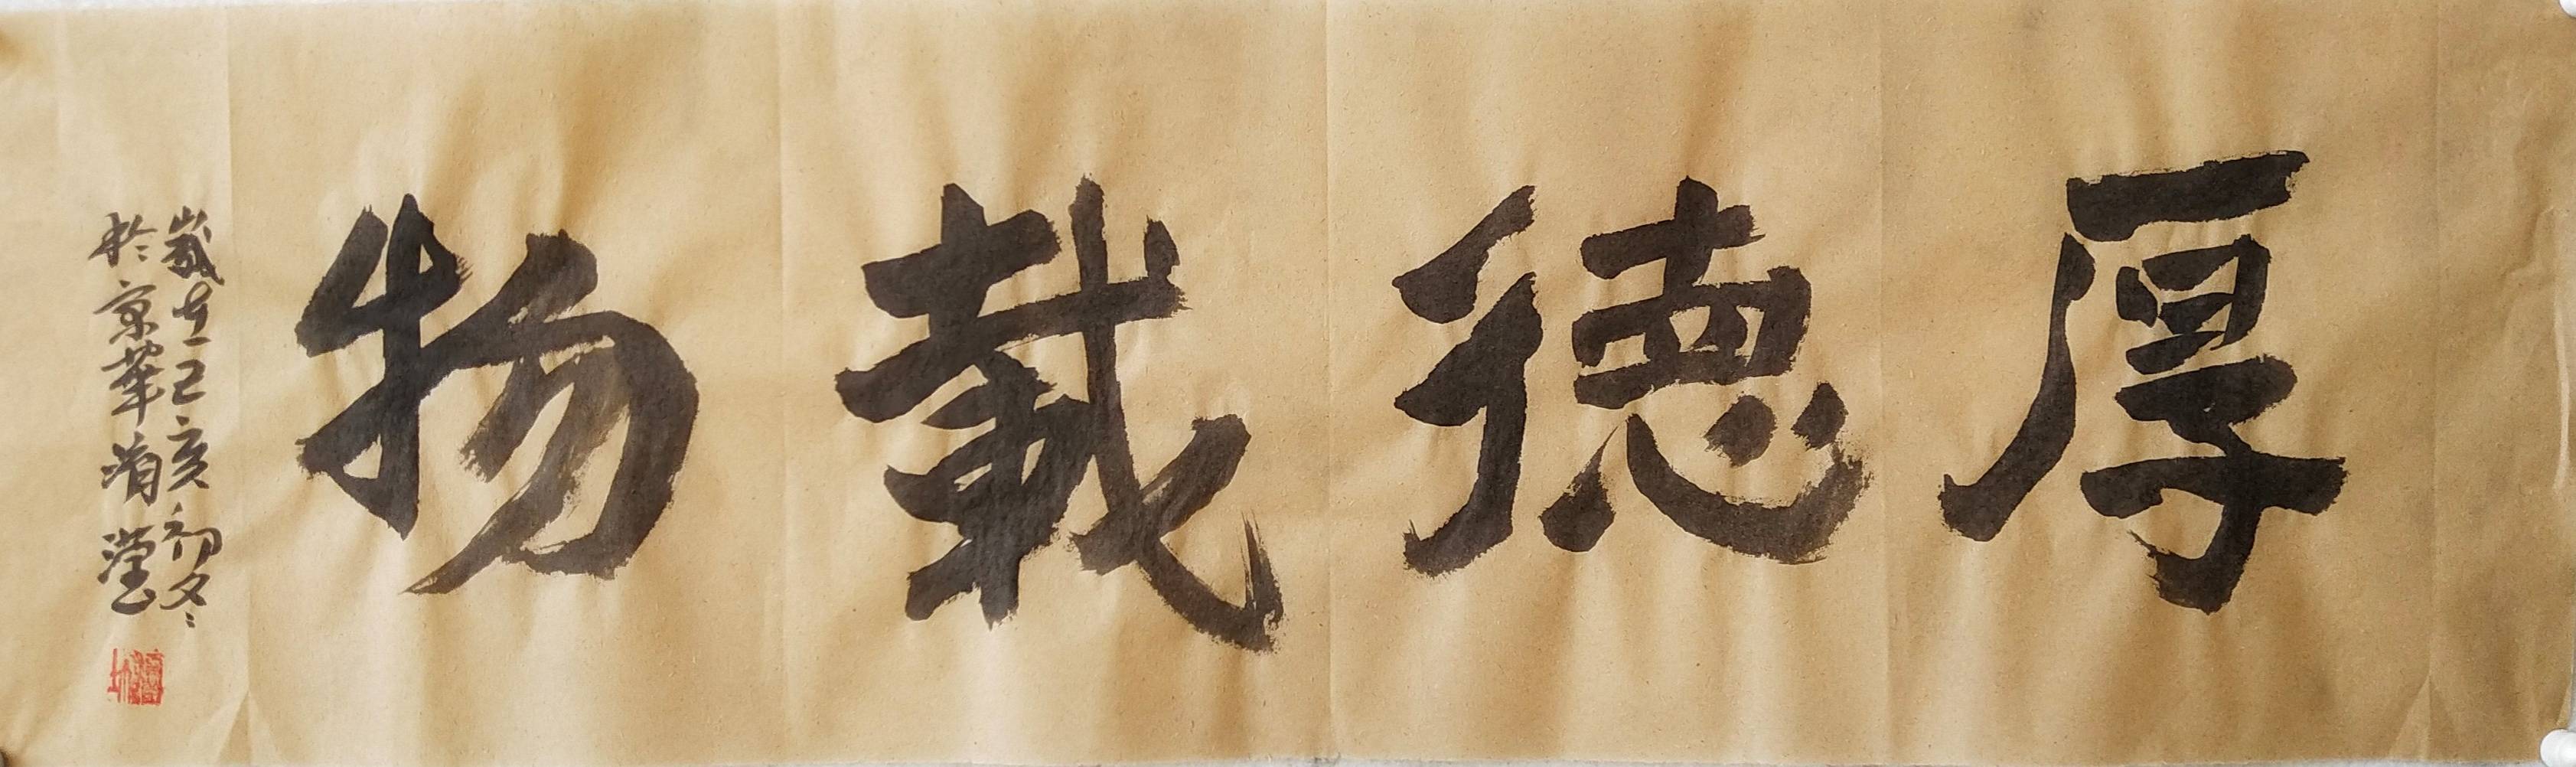 厚德載物
歲在己亥初冬
於京華清瀅